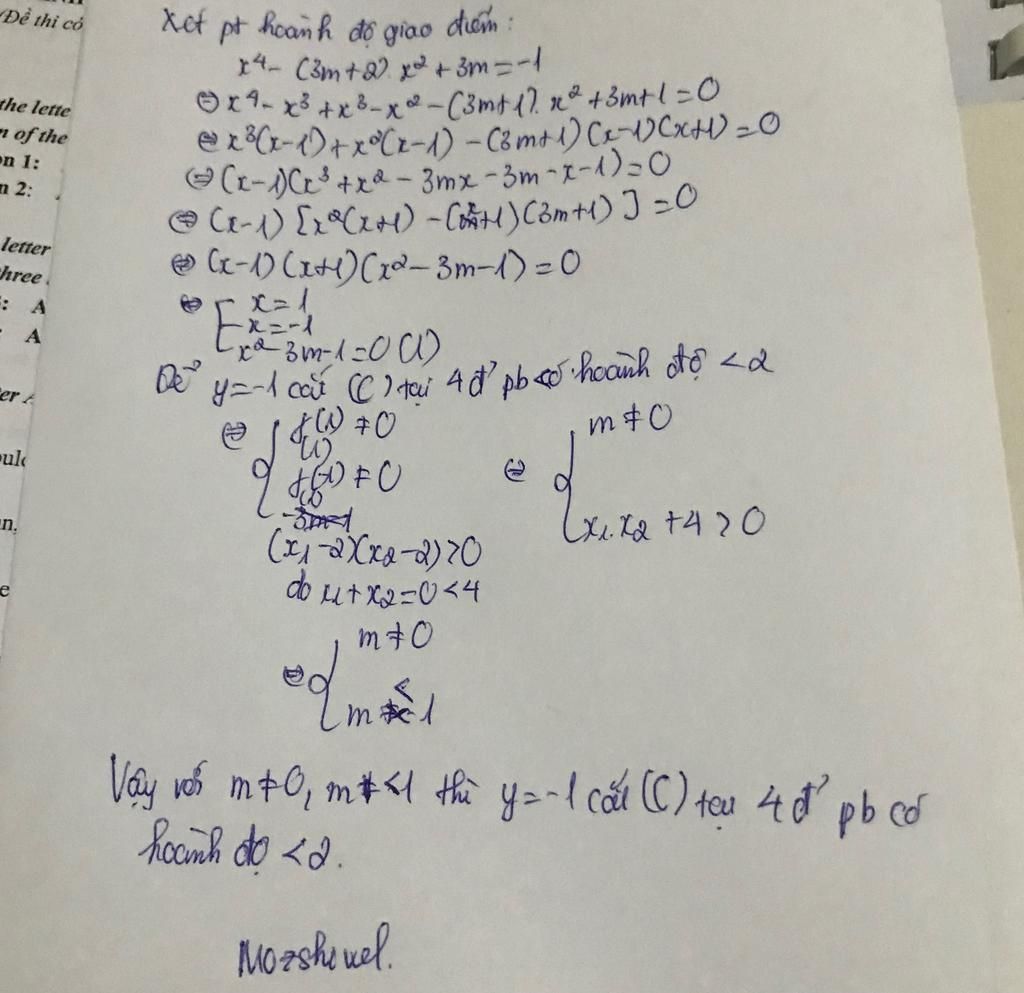 (Đề thi có
the lette
n of the
on 1:
n 2:
letter
three
: A
: A
er A
ould
n,
e
Xét pt hoành độ giao điểm:
x⁴ - (3m+2). x² + 3m = -1
⇔ x⁴ - x³ + x³ - x² - (3m+1). x² + 3m+1 = 0
⇔ x³(x-1) + x²(x-1) - (3m+1)(x-1)(x+1) = 0
⇔ (x-1)(x³ + x² - 3mx - 3m - x - 1) = 0
⇔ (x-1) [x²(x+1) - (x+1)(3m+1)] = 0
⇔ (x-1)(x+1)(x² - 3m - 1) = 0
⇔ [ x = 1
x = -1
x² - 3m - 1 = 0 (1)
Để y = -1 cắt (C) tại 4 đ' pb có hoành độ < 2
⇔ { f(1) ≠ 0 ⇔ { m ≠ 0
(1)
f(-1) ≠ 0
(1)
-3m-1 x₁.x₂ + 4 > 0
(x₁-2)(x₂-2) > 0
do x₁ + x₂ = 0 < 4
⇔ { m ≠ 0
m < 1
Vậy với m ≠ 0, m < 1 thì y = -1 cắt (C) tại 4 đ' pb có
hoành độ < 2.
Mozshevel.